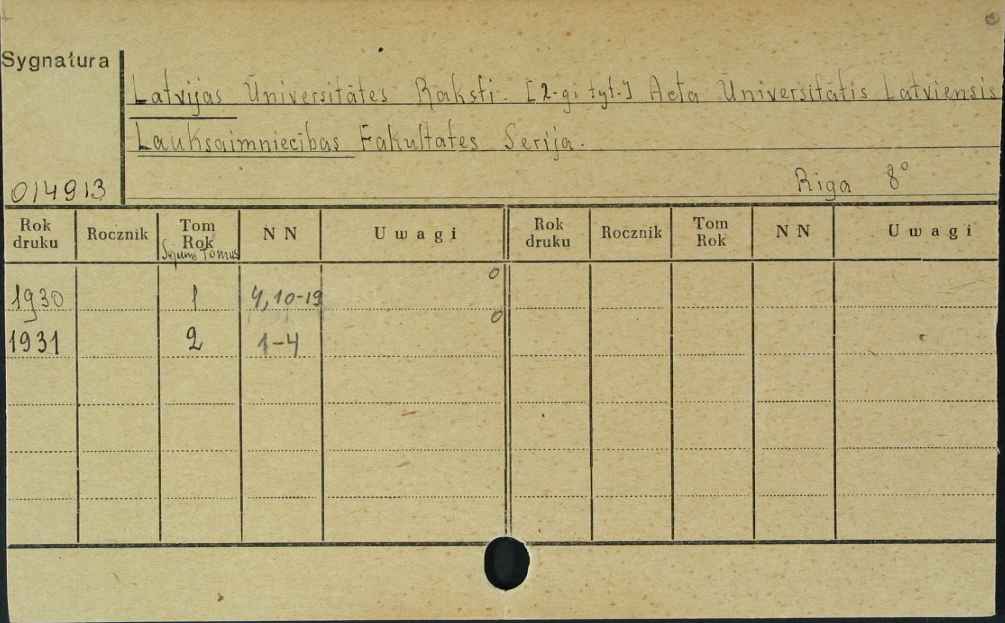 Sygnatura
Latvijas Ūniversitātes Raksti. [2-gi tyt.] Acta Ūniversitātis Latviensis
Lauksaimniecības Fakultātes Serija.
Riga 8°
014913
Rok druku Rocznik Tom Rok NN Uwagi Rok druku Rocznik Tom Rok NN Uwagi
Tomus
1930 1 4, 10-19
1931 2 1-4